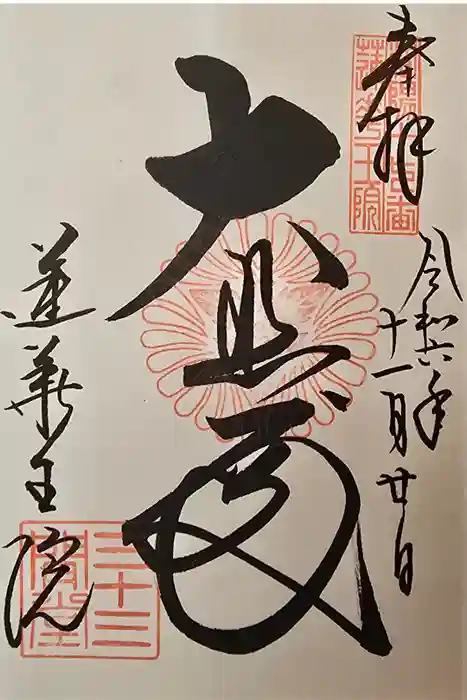 奉拝
令和六年
十一月廿日
大悲殿
蓮華王院
蓮華王院
三十三
間堂